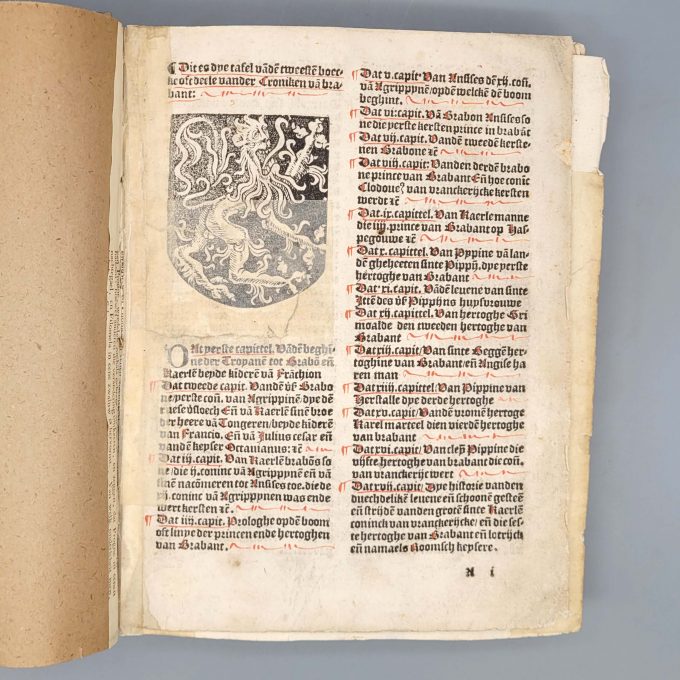 ¶ Dit es dye tafel vādē tweestē boec-
ke oft deele vander Croniken vā bra-
bant:
DAt yerste capittel. Vādē beghī-
ne der Troyanē tot Grabō eñ
Kaerlē beyde kīderē vā Frāchion
Dat tweede capit. Vandē vſ Grabo
ne/yersten coninc.
van Agrippynē dye dē
van Francio. Eñ vā Julius cesar eñ
vandē keyser Octauianus: ꝛē
Dat iij. capit. Van Kaerlē brabōs so
ne/die ij. coninc vā Agrippynē eñ vā
sinē nacōmeren tot Ansises toe. die de
xij. coninc van Agrippynen was ende
wert kersten ꝛē.
Dat iiij. capit. Prologhe opdē boom
oft linye der princen ende hertoghen
van Brabant.
Dat v. capit. Van Ansises dē xij. coñ.
vā Agrippynē/opdēn welckē dē boom
beghint.
Dat vi. capit. Vā Grabon Ansises so
ne die yerste kersten prince in brabāt
Dat vij. capit. Vanden tweedē kerste-
nen Grabone ꝛē
Dat viij. capit: Vanden derdē brabo
ne prince van Brabant Eñ hoe conīc
Clodoue⁹ van vranckerijcke kersten
werdt ꝛē
Dat .ix. capittel. Van Kaerlemanne
die iiij. prince van Brabant op Has-
pegouwe ꝛē
Dat x. capittel. Van Pypine vā lan-
dē gheheeten sinte Pippij. dye yerste
hertoghe van Brabant
Dat xi. capit. Vādē leuene van sinte
Ittēs des vſ Pippijns huysvrouwe
Dat xij. capittel. Van hertoghe Gri
moalde den tweeden hertoghe van
Brabant
Dat xiij. capit. Van sinte Begge her-
toghinne van Brabant/eñ Ansigis ha
ren man
Dat xiiij. capittel/Van Pippine van
Herstalle dye derde hertoghe
Dat xv. capit/Vandē vromē hertoge
Karel marteel dien vierdē hertoghe
van brabant
Dat xvi. capit/Van cleȳ Pippine die
vijfte hertoghe van brabant die coñ.
van vranckerijc wert
Dat xvij. capit/Dye historie vanden
duechdelikē leuene eñ schoonē gesteē
eñ strijdē vanden groten sinte Kaerlē
coninck van vranckerijcke/eñ die ses-
te hertoghe van Brabant eñ lotrijck
eñ namaels Roomsch keysere.
A i